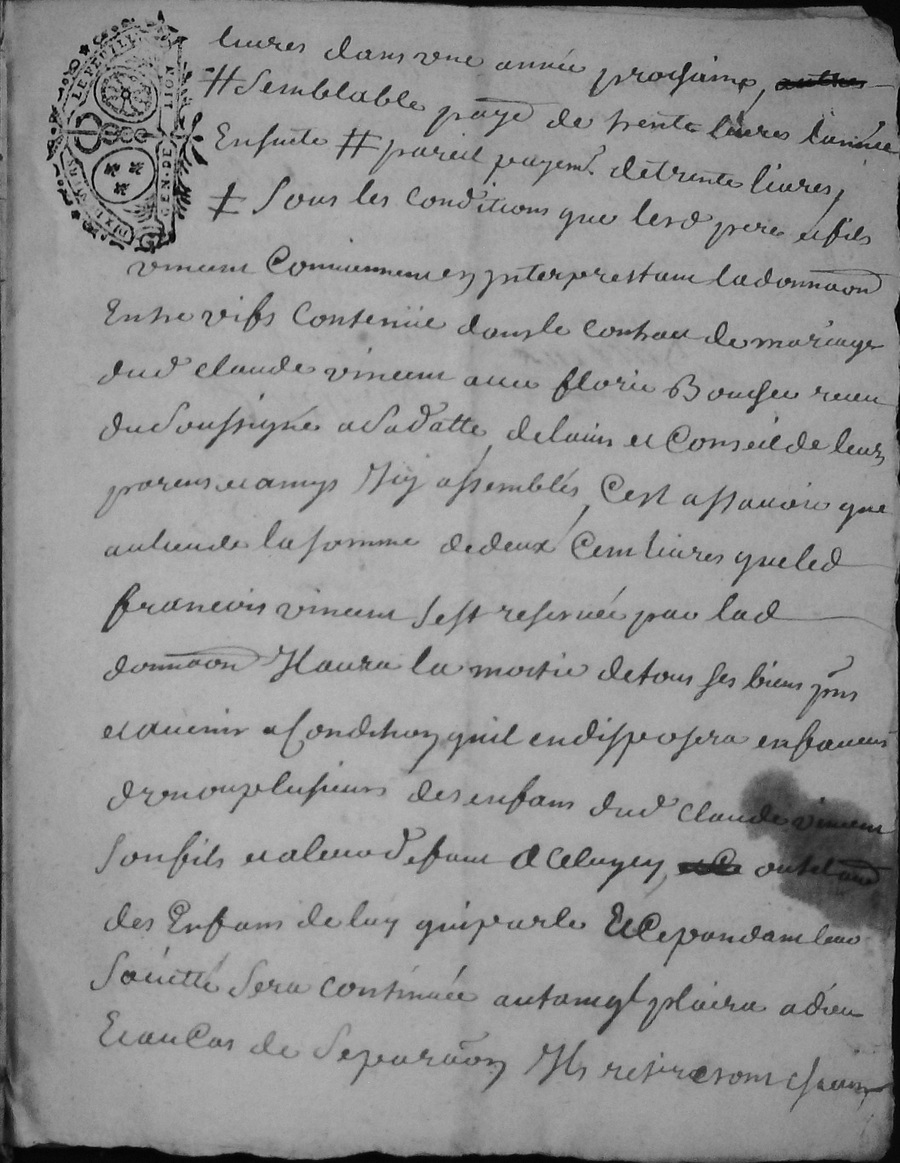 LE FEUILL
GEN. DE LION
livres dans une année prochaine,
# Semblable paye de trente livres l'année
Ensuite # pareil payemt. de trente livres,
ǂ Sous les conditions que lesd pere et fils
vincent Conviennent en ynterprestant la donnaon
Entre vifs Contenüe dans le contract de mariage
dud claude vincent avec florie receu
du Soussigné a Sa datte, de lavis et Conseil de leurs
parens et amys Icy assemblés, Cest assavoir que
au lieu de la somme de deux Cent livres que led
francois vincent sest reservée par lad
donnaon Il aura la moitié de tous ses biens pns
et avenir a Condition quil en disposera en faveur
d'un ou plusieurs des enfans dud claude vincent
Son fils et a leur defaut a Celuy cy, ou
des Enfans de luy qui parle Et Cependant leur
Société Sera continuée autant ql plaira a dieu
Et au Cas de Separaon Ils retireront chacun